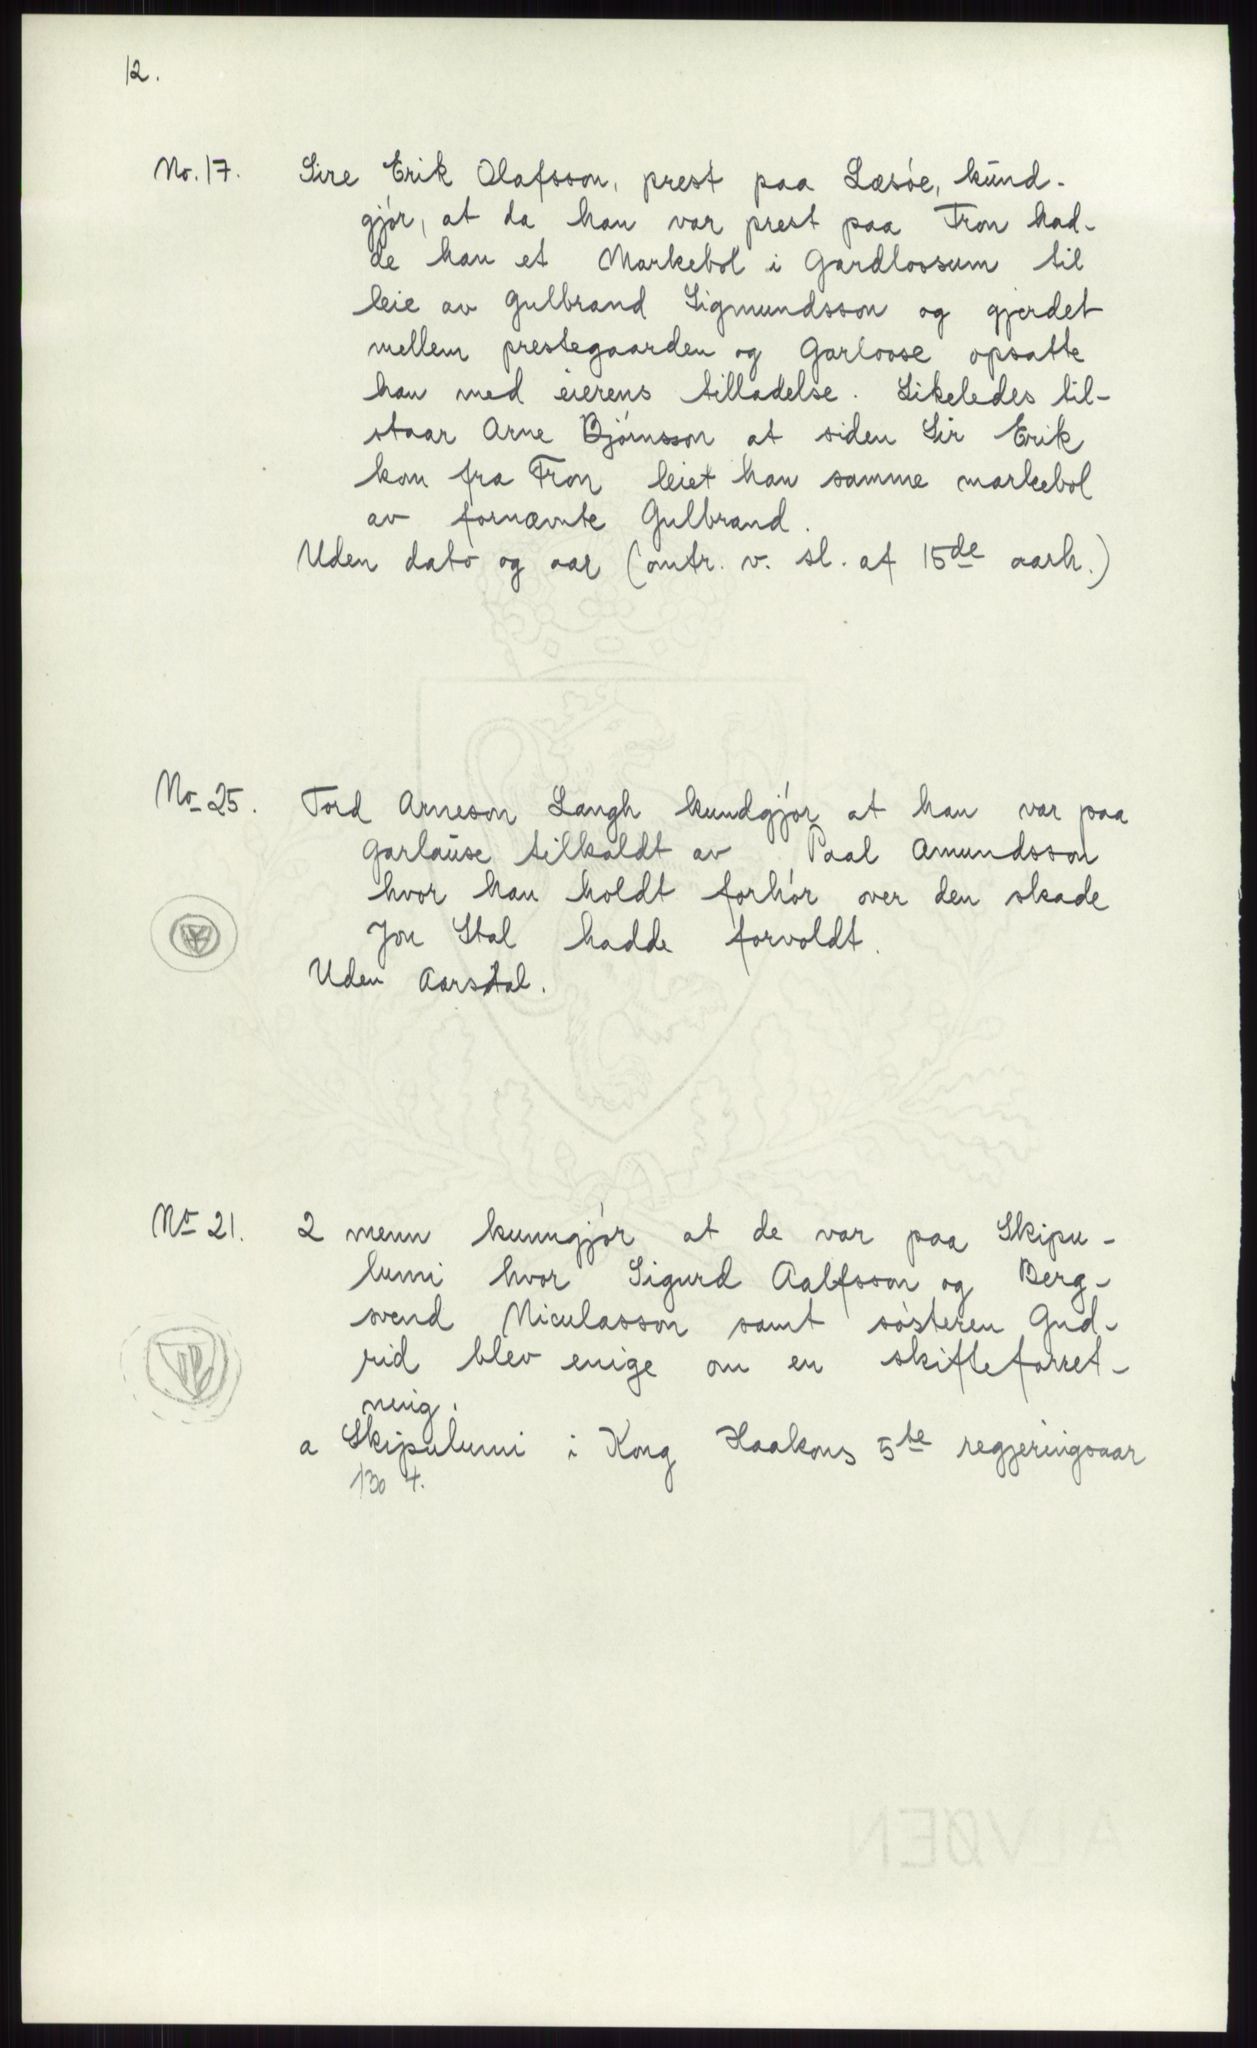 12.
No. 17. Sire Erik Olafsson, prest paa Læsøe, kund-
gjør, at da han var prest paa Fron had-
de han et Markebol i Gardlossum til
leie av Gulbrand Sigmundsson og gjerdet
mellem prestegaarden og Garloose opsatte
han med eierens tilladelse. Likeledes til-
staar Arne Bjørnsson at siden Sir Erik
kom fra Fron leiet han samme markebol
av fornævnte Gulbrand.
Uden dato og aar (omtr. v. sl. af 15de aarh.)
No 25. Tord Arneson Langh kundgjør at han var paa
Garlause tilkaldt av Paal Amundsson
hvor han holdt forhør over den skade
Jon Stal hadde forvoldt.
Uden Aarstal.
No 21. 2 menn kunngjør at de var paa Skipu-
lumi hvor Sigurd Aalfsson og Berg-
svend Niculasson samt søsteren Gud-
rid blev enige om en skifteforret-
ning.
a Skipulumi i Kong Haakons 5te regjeringsaar
1304.
ALVØEN